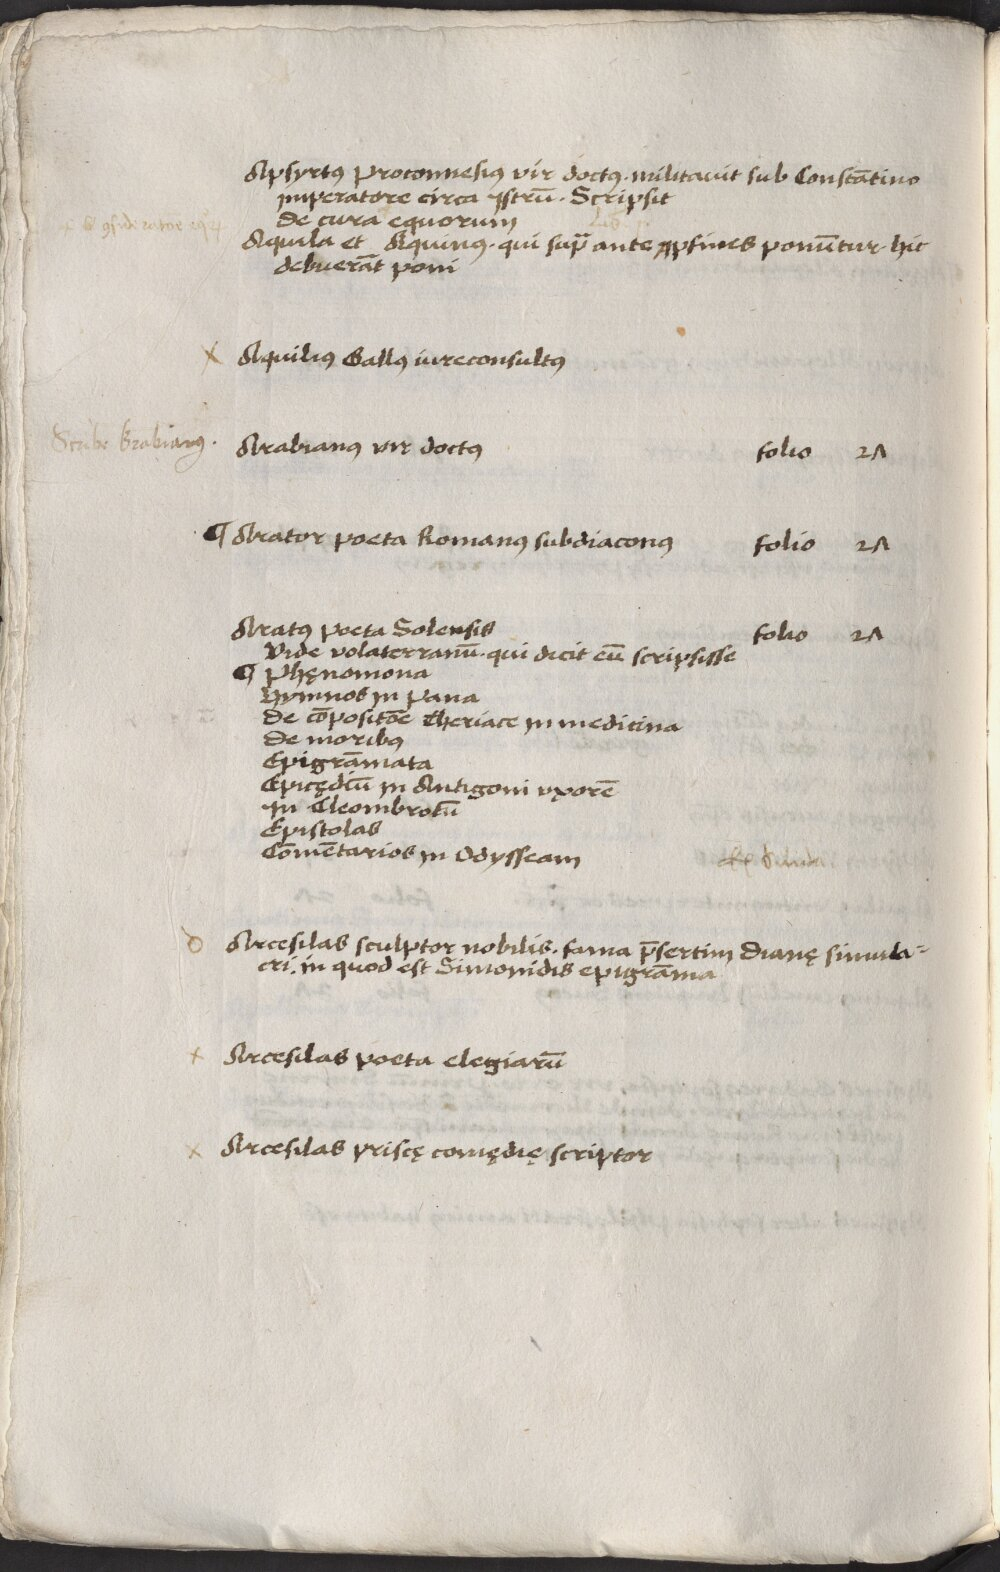 Apsyrtꝰ Proconnesiꝰ vir doctꝰ. militauit sub Constātino
imperatore circa Istrū. Scripsit
De cura equorum
Aquila et Aquinꝰ. qui sup̄ ante apsines ponūtur. hic
debuerāt poni
× Aquiliꝰ Gallꝰ iureconsultꝰ
Scribe Arabianꝰ.
Arabianꝰ vir doctꝰ folio 21
¶ Arator poeta Romanꝰ subdiaconꝰ folio 21
Aratꝰ poeta Solensis folio 21
Vide volaterranū. qui dicit eū scripsisse
¶ Phęnomona
Hymnos in Pana
De cōpositōe theriace in medicina
De moribꝰ
Epigrāmata
Epicędiū in Antigoni vxorē
In Cleombrotū
Epistolas
Cōmētarios in Odysseam
o Arcesilas sculptor nobilis. fama p̄sertim Dianę simula=
cri. in quod est Simonidis epigrāma
× Arcesilas poeta elegiarū
× Arcesilas priscę comędię scriptor